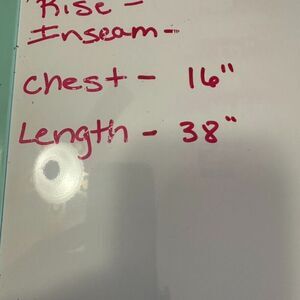 Rise -
Inseam -
Chest - 16"
Length - 38"